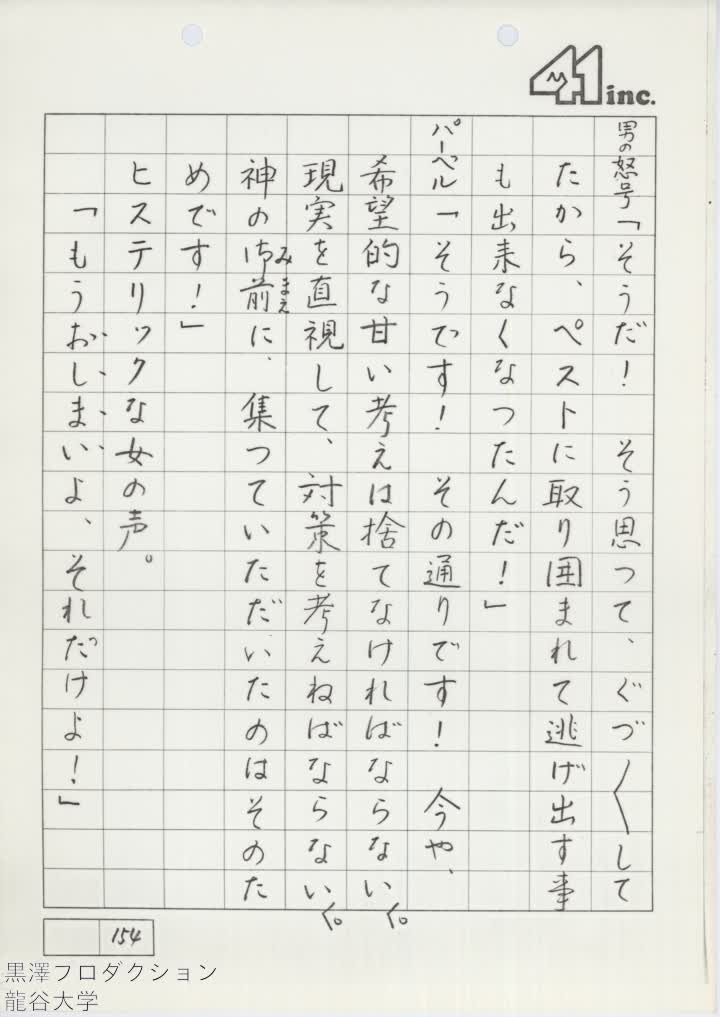 41 inc.
男の怒号「そうだ！　そう思つて、ぐづ〳〵して
たから、ペストに取り囲まれて逃げ出す事
も出来なくなつたんだ！」
パーペル「そうです！　その通りです！　今や、
希望的な甘い考えは捨てなければならない。
現実を直視して、対策を考えねばならない。
神の御前に、集つていただいたのはそのた
みまえ
めです！」
ヒステリックな女の声。
「もうおしまいよ、それだけよ！」
154
黒澤フロダクション
龍谷大学